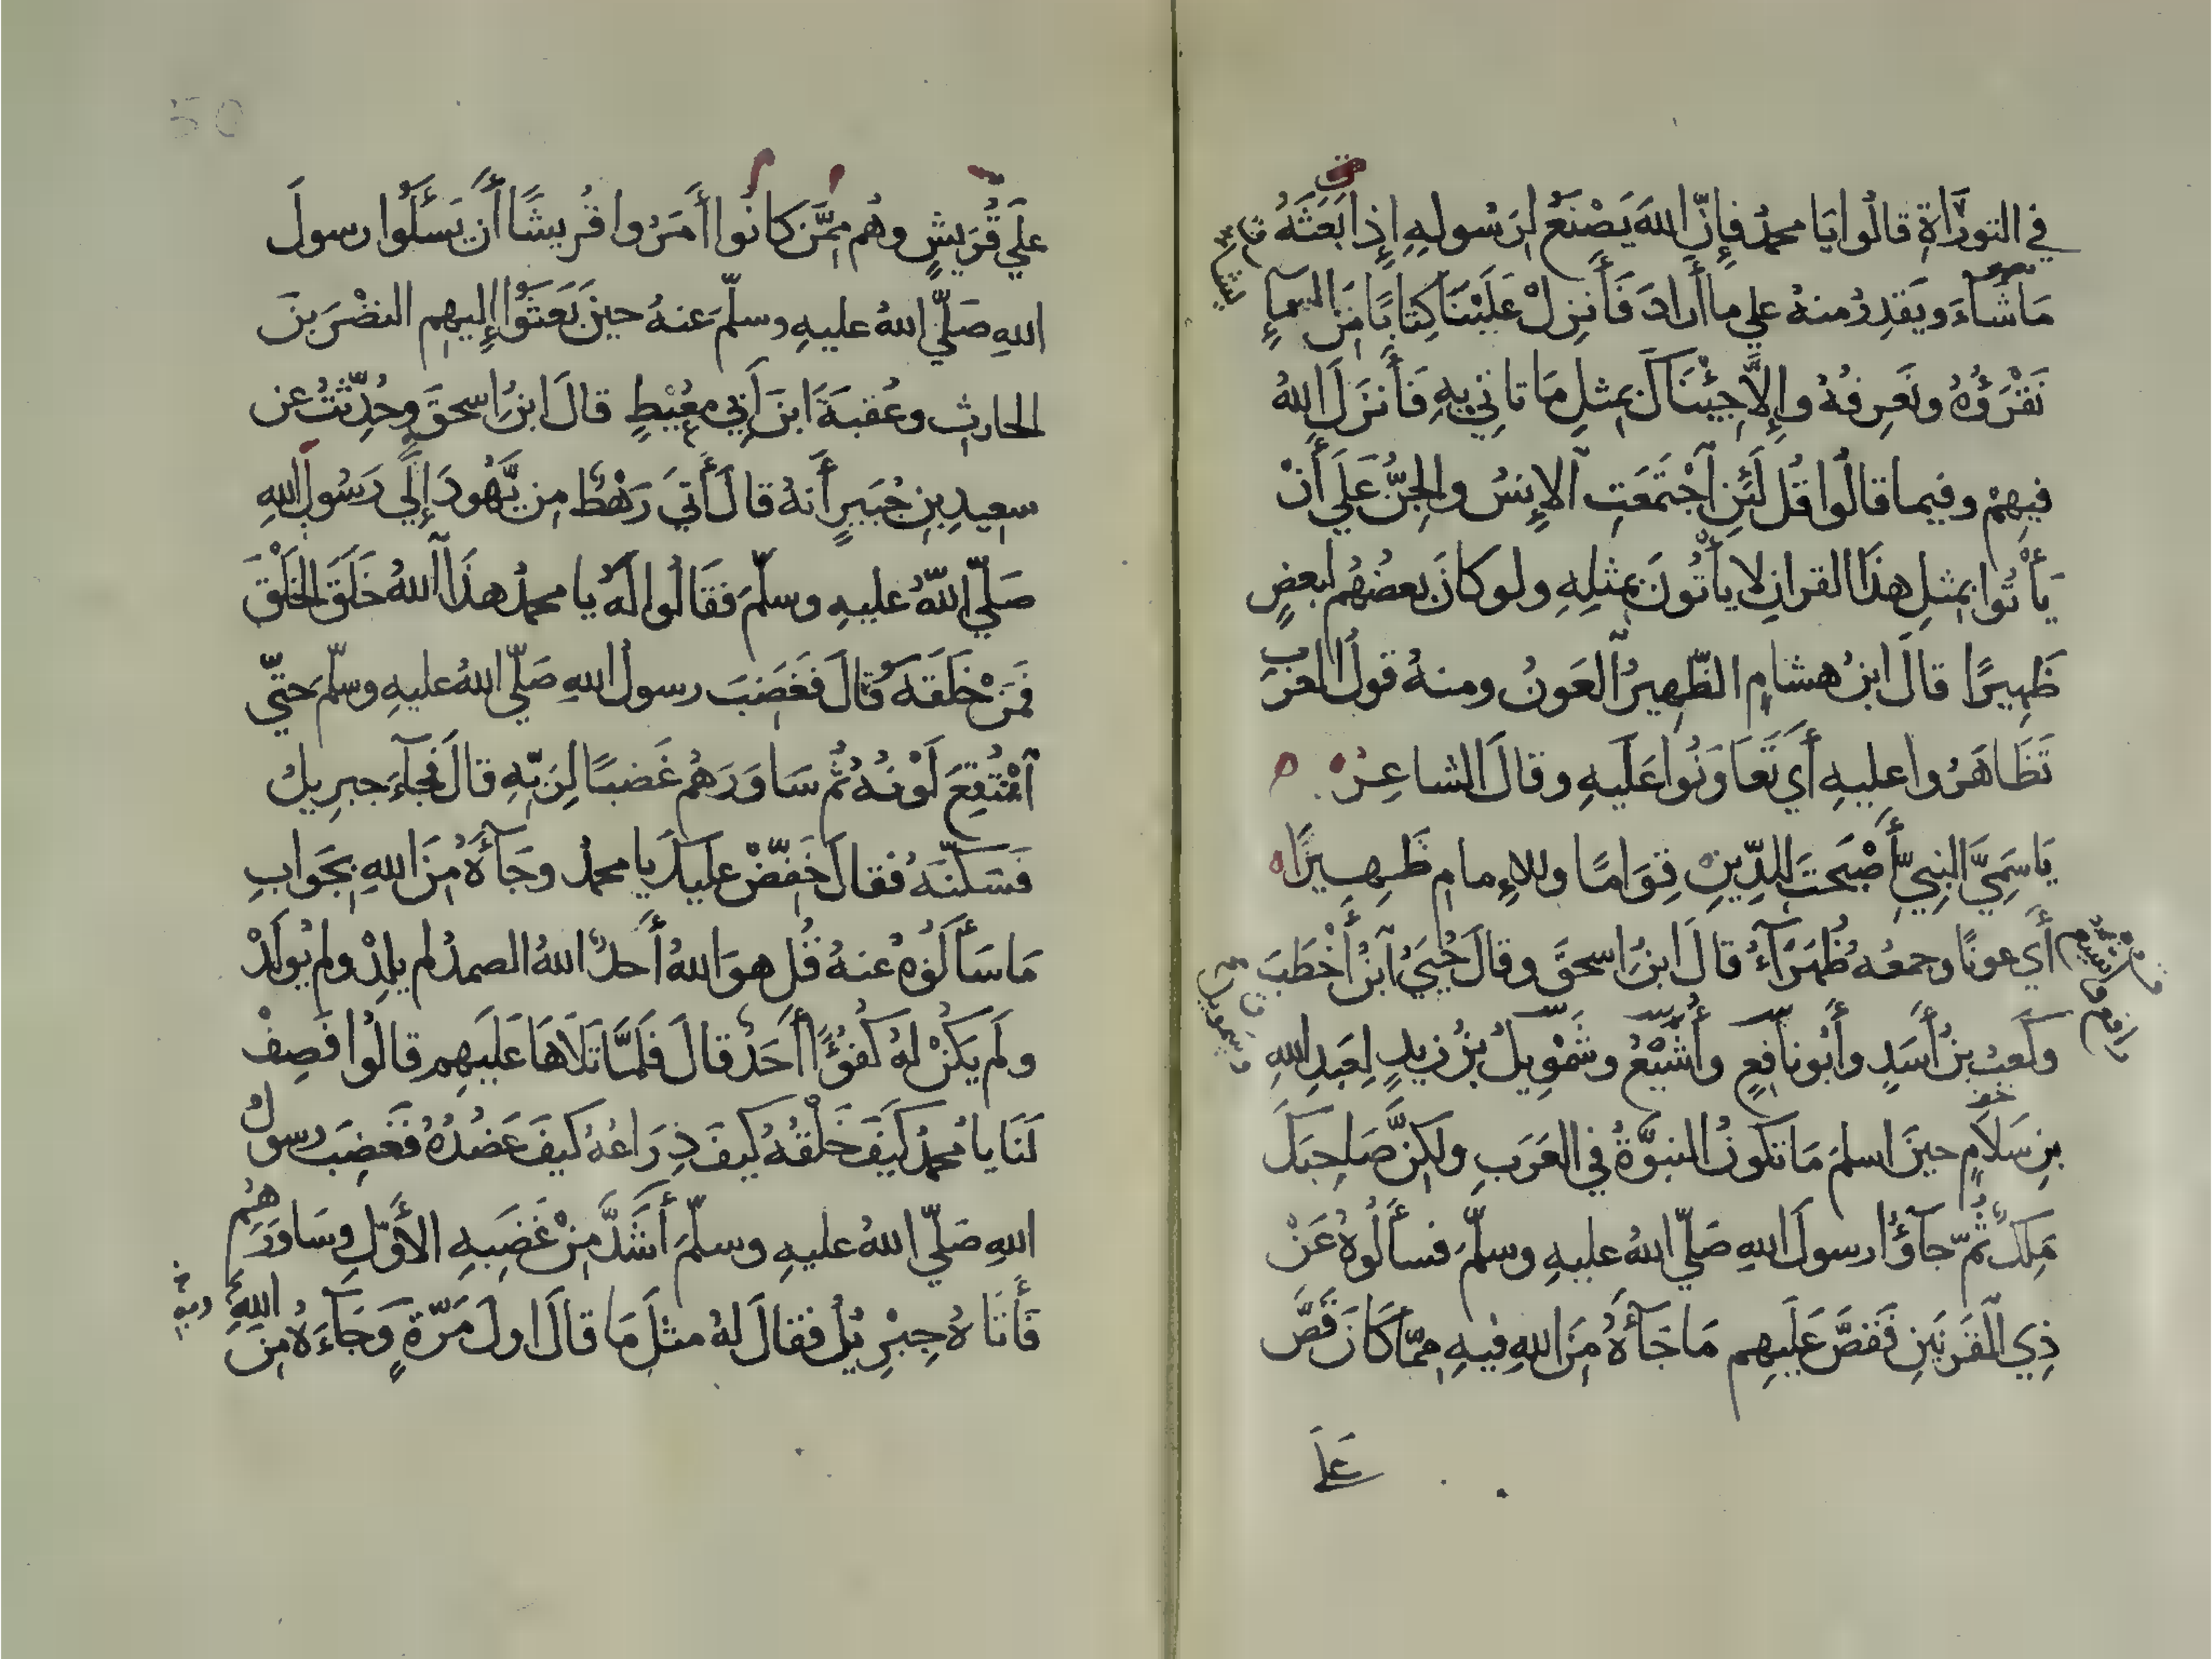 في التوراة قالُوا يَا محمدُ فإنّ اللهَ يَصْنَعُ لِرَسُولِهِ إِذا بَعَثَهُ
مَا شَآءَ ويَقدِرُ منهُ علي ما أرادَ فَأَنزِلْ عَلَيْنَا كِتابًا مِنَ السماءِ
نَقْرَؤُهُ ونَعرِفُهُ وإِلاَّ جِيْنَاكَ بمثلِ مَا تاتي بِهِ فَأَنزَلَ اللهُ
فيهِمْ وفيما قالُوا قُل لَئِنِ ٱجْتَمَعَتِ ٱلإِنسُ والجِنُّ عَلَي أَنْ
يَأْتُوا بِمثلِ هذَا القرانِ لا يأْتُونَ بِمثلِهِ ولو كانَ بعضُهُم لبعضٍ
ظَهِيرًا قالَ ابنُ هشامٍ الظّهِيرُ العَونُ ومنهُ قولُ العَرَب
تَظَاهَرُوا عليهِ أَي تَعَاوَنُوا عَلَيهِ وقالَ الشاعِرُ
يَا سَمِيَّ النبِيِّ أَصْبَحتَ لِلدِّينِ قِوَامًا وللإِمامِ ظَهِيرًا
أَي عونًا وجمعُه ظُهَرَآءُ قالَ ابنُ اسحقَ وقالَ حُيَيُّ ٱبنُ أَخْطَبَ
وكَعبُ بنُ أَسَدٍ وأَبُو نافِعٍ وأُشَيْعُ وشَمْوِيلُ بنُ زيدٍ لِعَبدِ اللهِ
بنِ سَلَامٍ حينَ اسلمَ مَا تكونُ النبوَّةُ في العَرَبِ ولكِنَّ صَاحِبَكَ
مَلِكٌ ثُمّ جآؤُا رسولَ اللهِ صَلّي اللهُ عليهِ وسلّمَ فسأَلُوهُ عَنْ
ذِي القَرنَينِ فَقَصَّ عَلَيهِم مَا جَآءَهُ مِنَ اللهِ فيهِ مِمّا كَانَ قَصَّ
عَلَي
علَي قُرَيشٍ وهُم مِمَّن كانُوا أَمَرُوا قُريشًا أَن يَسْئَلُوا رسولَ
اللهِ صَلّي اللهُ عليهِ وسلّمَ عنهُ حينَ بَعَثَوْا إِليهِم النضْرَ بنَ
الحارثِ وعُقبَةَ ابنَ أَبي مُعَيْطٍ قالَ ابنُ اسحقَ وحُدِّثتُ عن
سعيدِ بنِ جُبَيرٍ أَنهُ قالَ أَتَي رَهْطٌ مِن يَّهُودَ إِلَي رَسُولِ اللهِ
صَلّي اللهُ عليهِ وسلّمَ فَقَالُوا لَهُ يا محمدُ هذَا ٱللهُ خَلَقَ الخَلْقَ
فَمَنْ خَلَقَهُ قالَ فَغَضِبَ رسولُ اللهِ صَلّي اللهُ عليهِ وسلّمَ حتّي
ٱمْتُقِعَ لَوْنُهُ ثُمّ سَاوَرَهُم غَضبًا لِرَبّهِ قالَ فجآءَ جبرِيلُ
فَسَكَّنَهُ فقالَ خَفِّضْ عليكَ يا محمدُ وجَآءَهُ مِنَ اللهِ بِجَوابِ
مَا سَأَلَوُهُ عنهُ قُل هوَ اللهُ أَحدٌ اللهُ الصمدُ لم يلِدْ ولم يُولَدْ
ولَم يَكُنْ لهُ كُفُؤًا أَحَدٌ قالَ فَلَمَّا تَلَاهَا عَلَيهِم قالُوا فَصِفْ
لَنَا يا محمدُ كَيْفَ خَلْقُهُ كيفَ ذِرَاعُهُ كيفَ عَضُدُهُ فَغَضِبَ رسولُ
اللهِ صَلّي اللهُ عليهِ وسلّمَ أَشَدَّ مِنْ غَضَبِهِ الأَوّلِ وسَاوَرَهُم
فَأَتَاهُ جِبْرِيلُ فقالَ لهُ مثلَ مَا قالَ اول مَرّةٍ وَجَآءَهُ مِنَ اللهِ